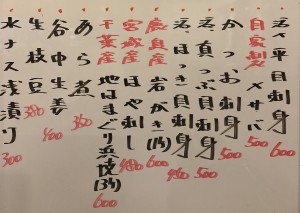 活〆平目刺身 600
自家製 〆サバ 500
かつお刺身 500
活真つぶ貝刺身 500
活ほっき貝刺身 480
鹿島産 岩がき(1ヶ) 600
宮城産 ほや刺し 480
千葉産 地はまぐり浜焼(3ケ) 600
あら煮 350
谷中生姜 400
生枝豆 380
水ナス浅漬り 300